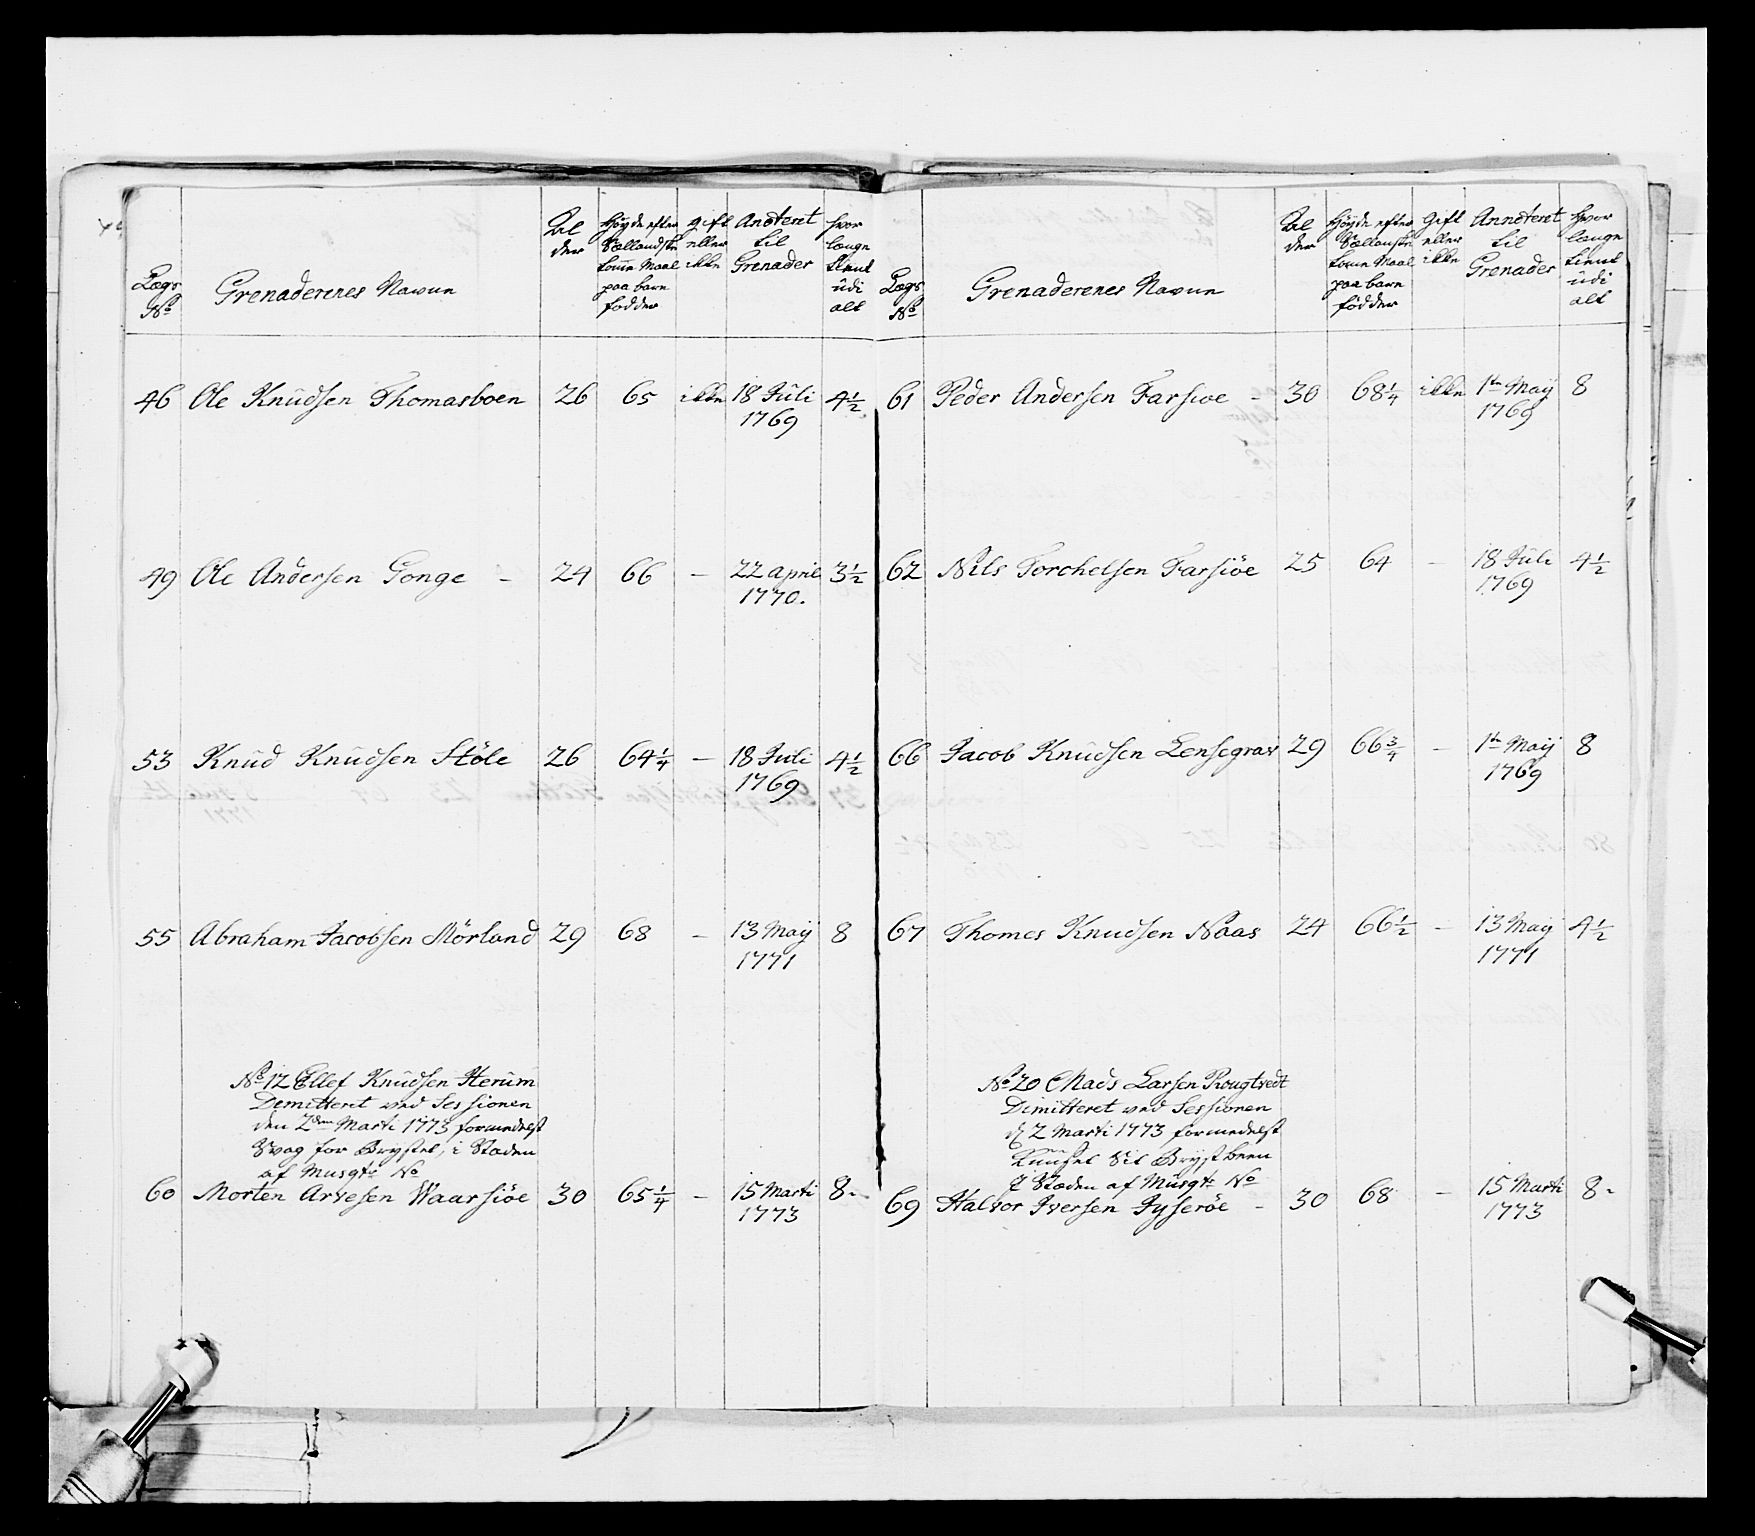 Lægs No
Grenaderenes Nawn
Al der
Høyde efter Siællandske tomme Maal paa bare fødder
gift eller ikke
Anoteret til Grenader
hvor længe tient udi alt
46 Ole Knudsen Thomasboen 26 65 ikke 18 Juli 1769 4½
49 Ole Andersen Gonge - 24 66 - 22 april 1770. 3½
53 Knud Knudsen Støle 26 64¼ - 18 Juli 1769 4½
55 Abraham Jacobsen Mörland 29 68 - 13 Maij 1771 8
No 12 Ellef Knudsen Herum
Demitteret ved Sessionen
den 2den Marti 1773 formedelst
Svag for Brystet, i Stæden
af Musqtr No
60 Morten Arvesen Waarsiöe 30 65¼ - 15 Marti 1773 8-
Lægs No
Grenaderenes Nawn
Al der
Høyde efter Siællanske tomme Maal paa bare födder
Gift eller ikke
Annoteret til Grenader
hvor længe tient udi alt
61 Peder Andersen Farsioe - 30 68¼ ikke 1te Maij 1769 8
62 Nils Torchelsen Farsiöe 25 64 - 18 Juli 1769 4½
66 Jacob Knudsen Lensegrav 29 66¾ - 1te Maij 1769 8
67 Thomes Knudsen Naas 24 66½ - 13 Maij 1771 4½
No 20 Mads Larsen Rougtvedt
Dimitteret ved Sessionen
d 2 Marti 1773 formedelst
Knuset Sit Bryst been
I Stæden af Musqtr No
69 Halvor Iversen Jyseröe - 30 68 - 15 Marti 1773 8-